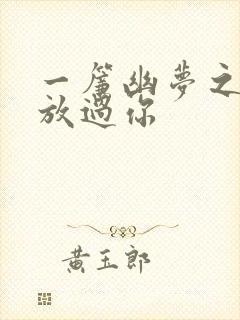 一簾幽夢之
放過你
黃玉郎